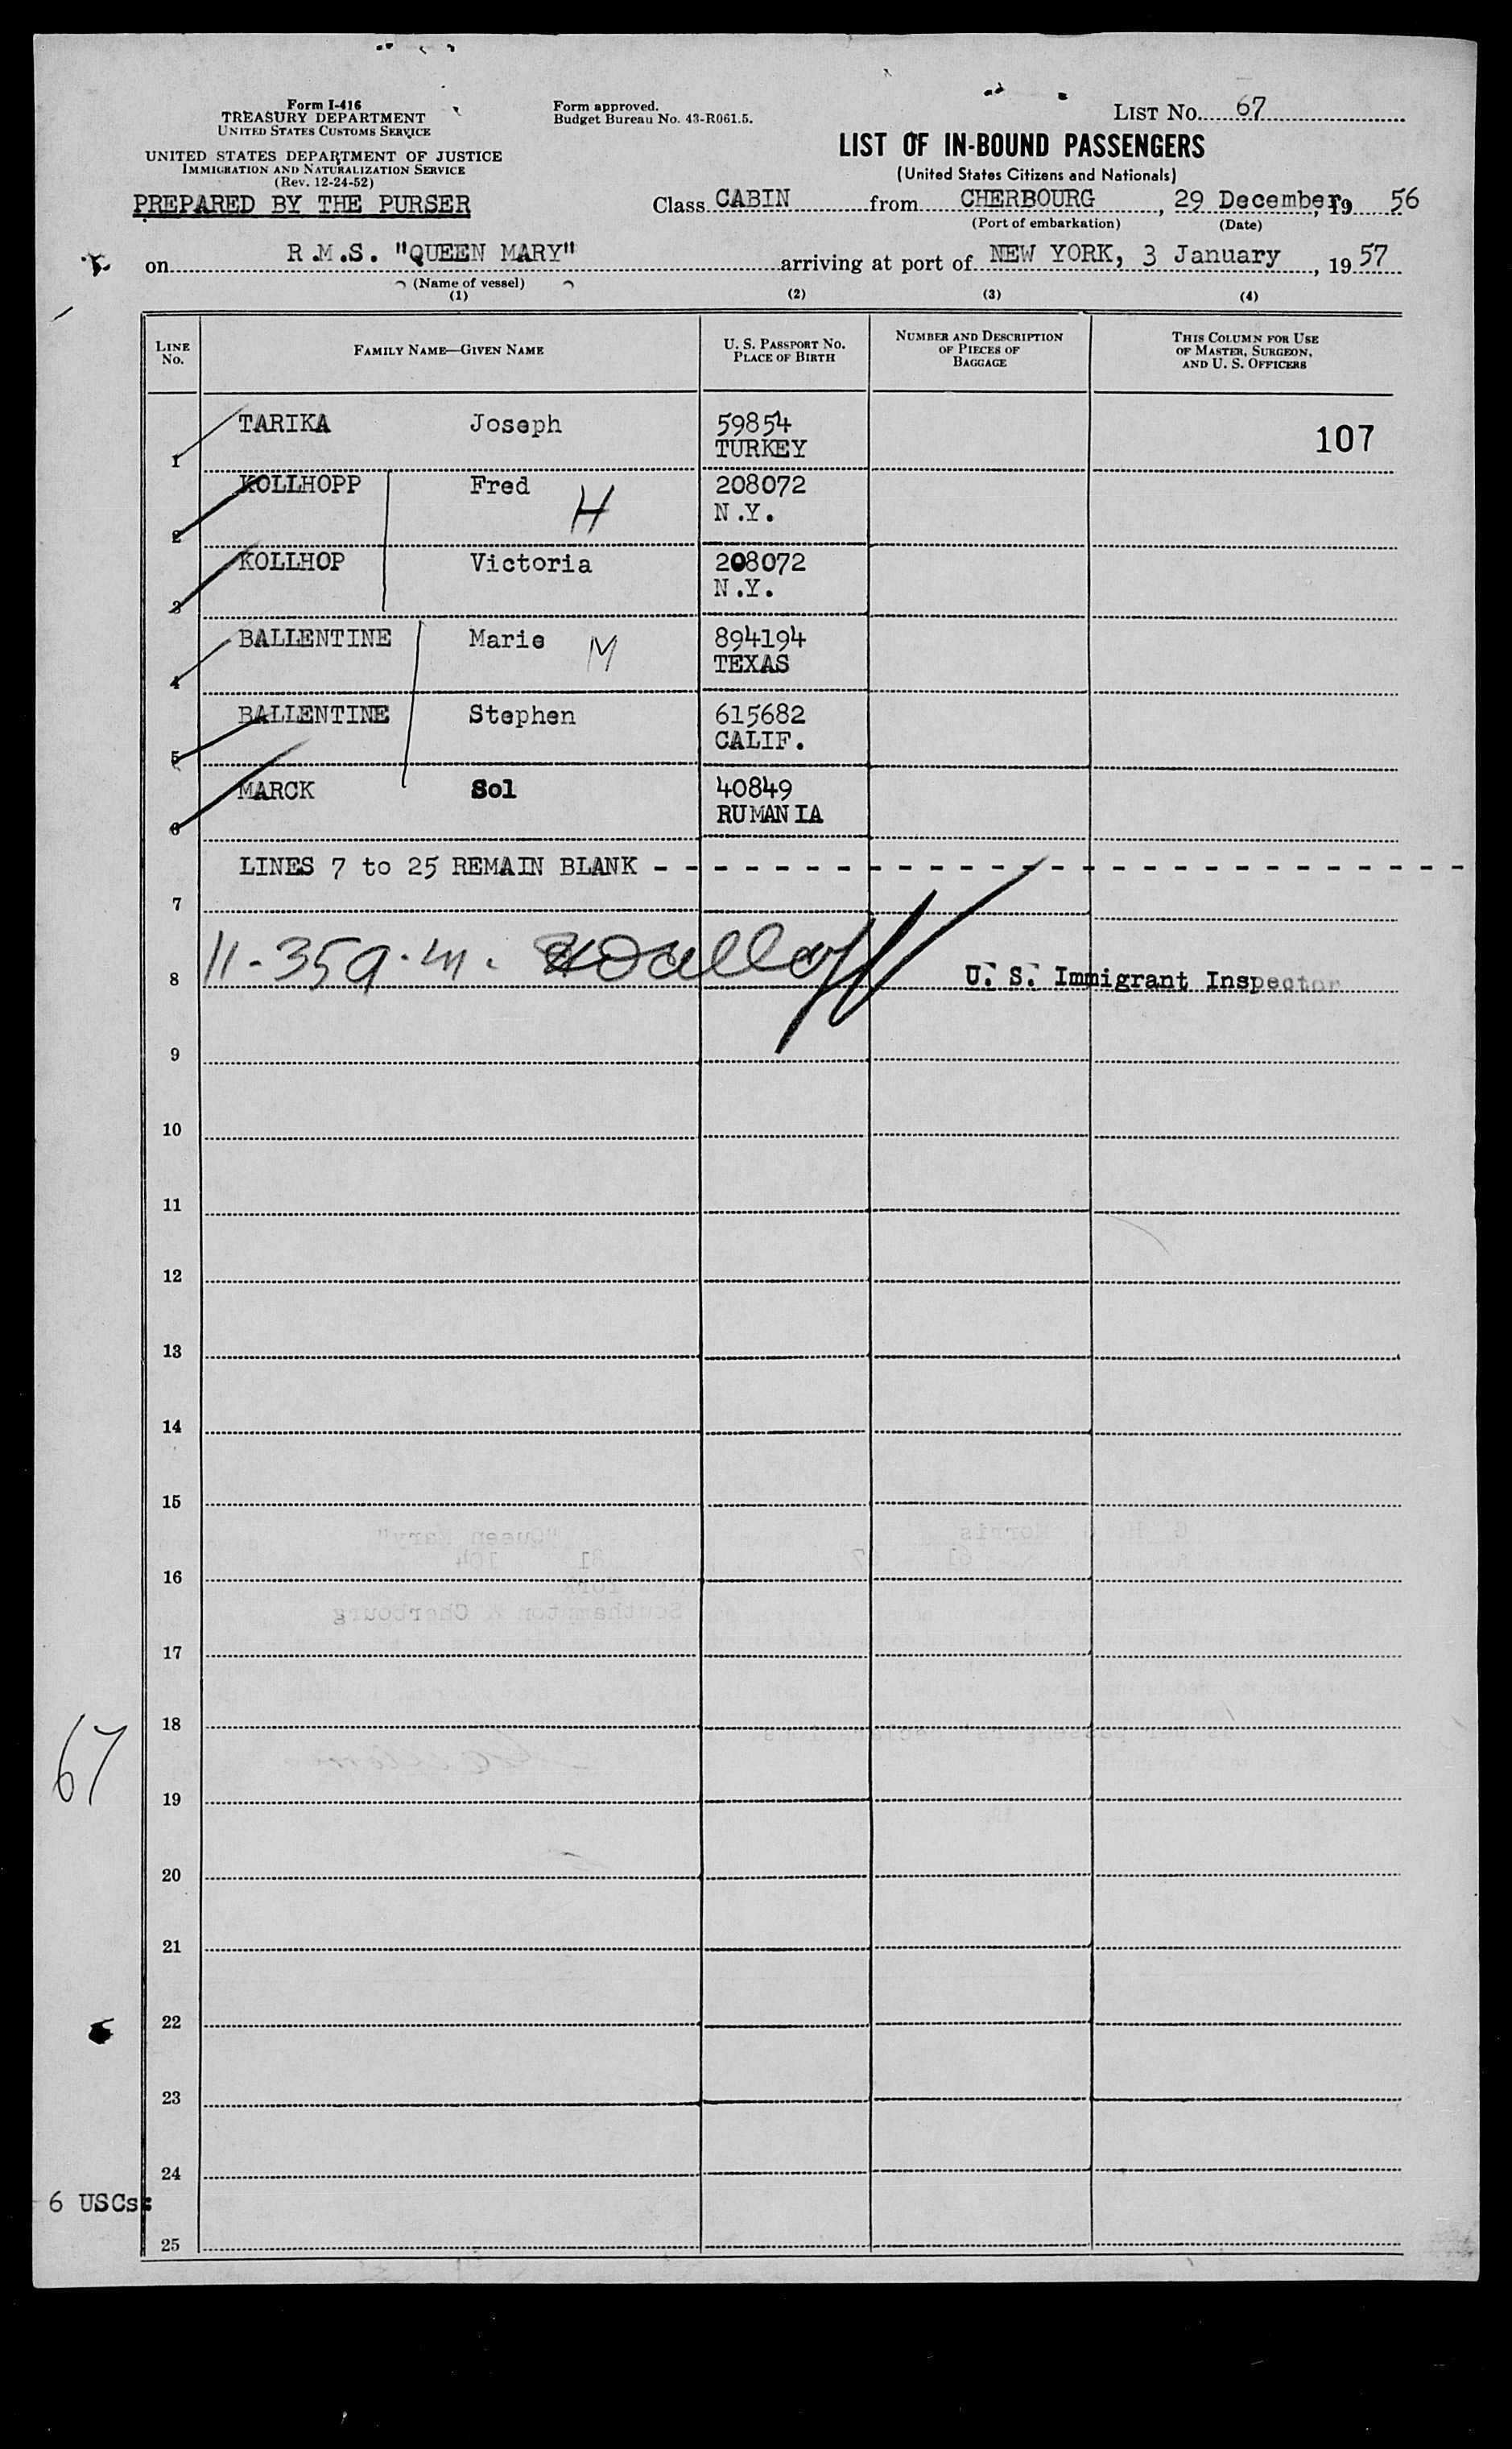 Form I-416
TREASURY DEPARTMENT
UNITED STATES CUSTOMS SERVICE
UNITED STATES DEPARTMENT OF JUSTICE
IMMIGRATION AND NATURALIZATION SERVICE
(Rev. 12-24-52)
PREPARED BY THE PURSER
Form approved.
Budget Bureau No. 43-R061.5.
LIST No. 67
LIST OF IN-BOUND PASSENGERS
(United States Citizens and Nationals)
Class CABIN from CHERBOURG, 29 December, 19 56
(Port of embarkation) (Date)
on R.M.S. "QUEEN MARY" arriving at port of NEW YORK, 3 January, 19 57
(Name of vessel)
(1) (2) (3) (4)
LINE No. FAMILY NAME—GIVEN NAME U. S. PASSPORT NO. PLACE OF BIRTH NUMBER AND DESCRIPTION OF PIECES OF BAGGAGE THIS COLUMN FOR USE OF MASTER, SURGEON, AND U. S. OFFICERS
1 TARIKA Joseph 59854 107
TURKEY
2 KOLLHOPP Fred H 208072
N.Y.
3 KOLLHOP Victoria 208072
N.Y.
4 BALLENTINE Marie M 894194
TEXAS
5 BALLENTINE Stephen 615682
CALIF.
6 MARCK Sol 40849
RUMANIA
LINES 7 to 25 REMAIN BLANK - - - - - - - - - - - - - - - - - - - - - - - - - -
7
8 11-35a.m. U. S. Immigrant Inspector
9
10
11
12
13
14
15
16
17
18
67
19
20
21
22
23
24
6 USCs:
25